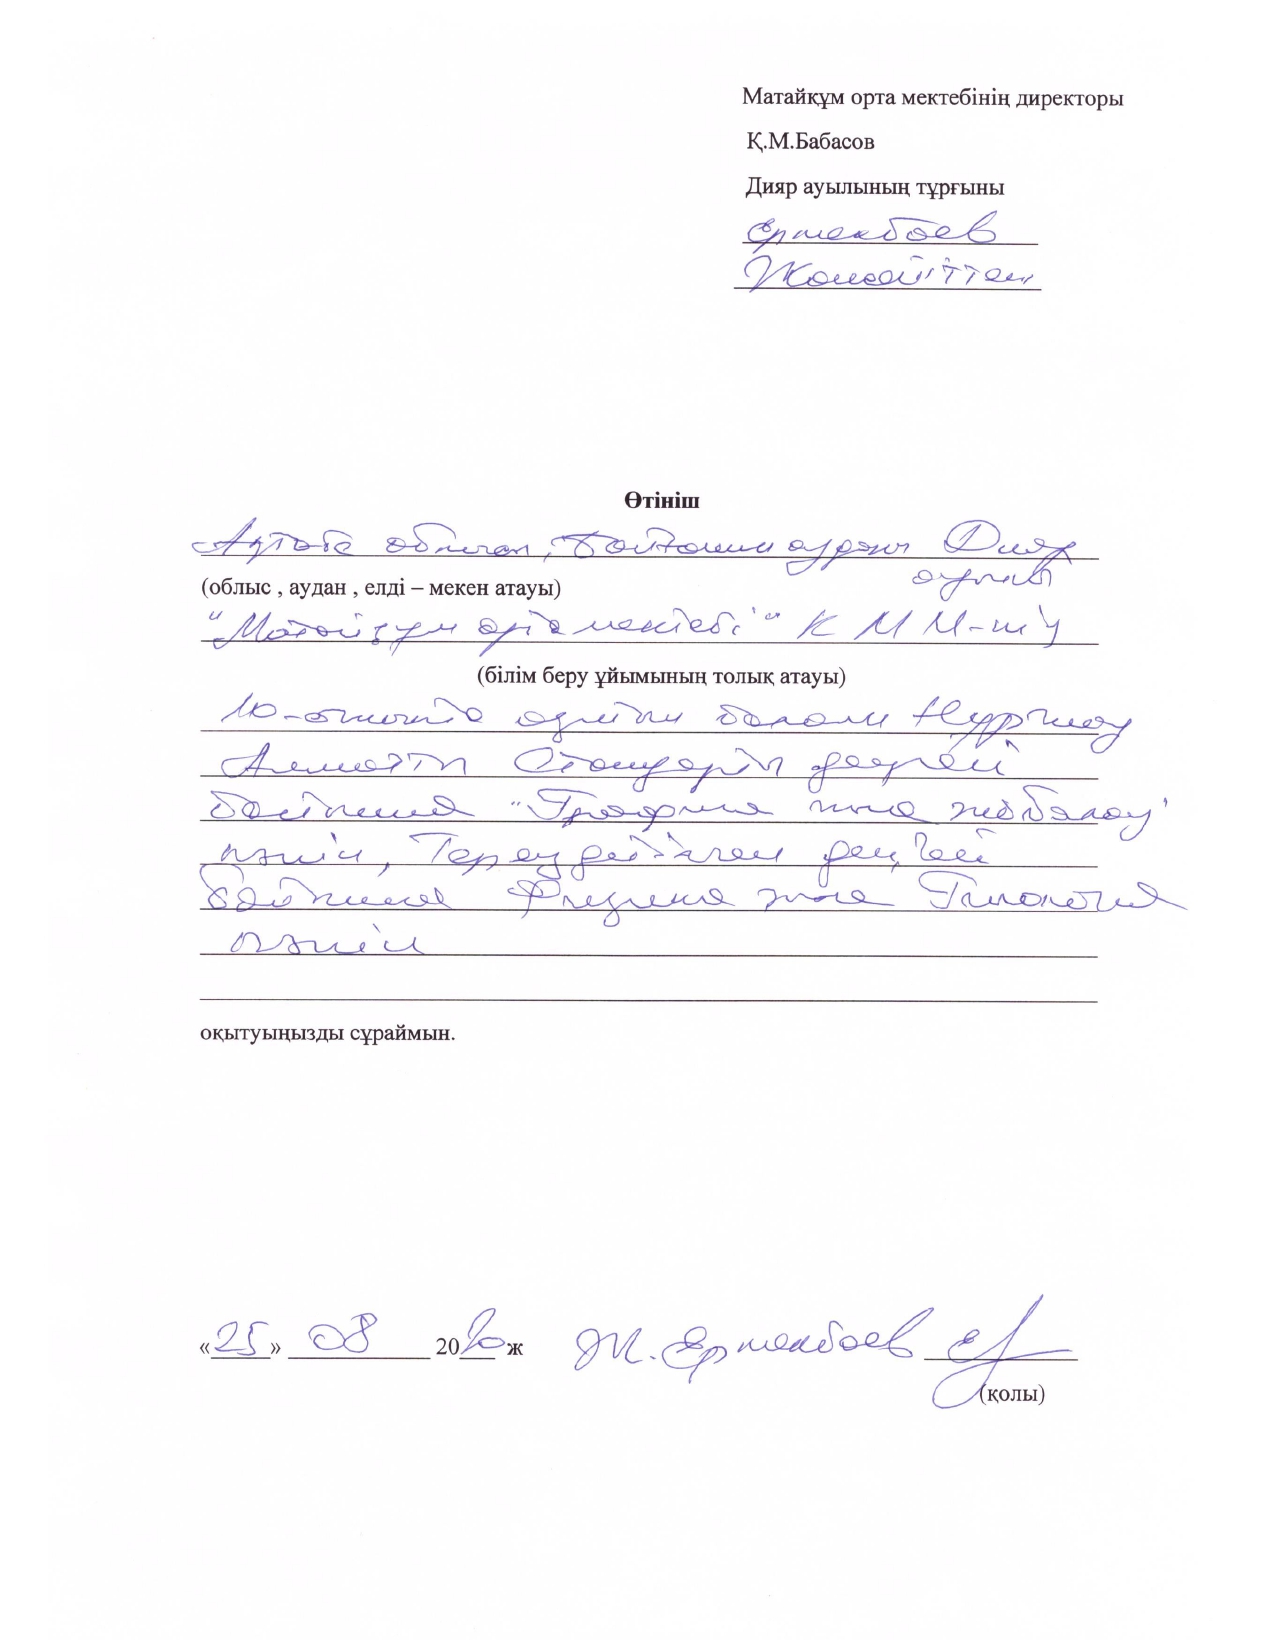 Матайқұм орта мектебінің директоры
Қ.М.Бабасов
Дияр ауылының тұрғыны
Ермекбаев
Өтініш
Ақтөбе облысы, Байғанин ауданы Дияр
ауылы
(облыс , аудан , елді – мекен атауы)
"Матайқұм орта мектебі" КММ-нің
(білім беру ұйымының толық атауы)
10-сыныпта оқитын балам
Стандартты деңгей
бойынша "Графика және жобалау"
пәнін, Тереңдетілген деңгей
бойынша Физика және Биология
пәнін
оқытуыңызды сұраймын.
«25» 08 2020 ж Ж. Ермекбаев
(қолы)